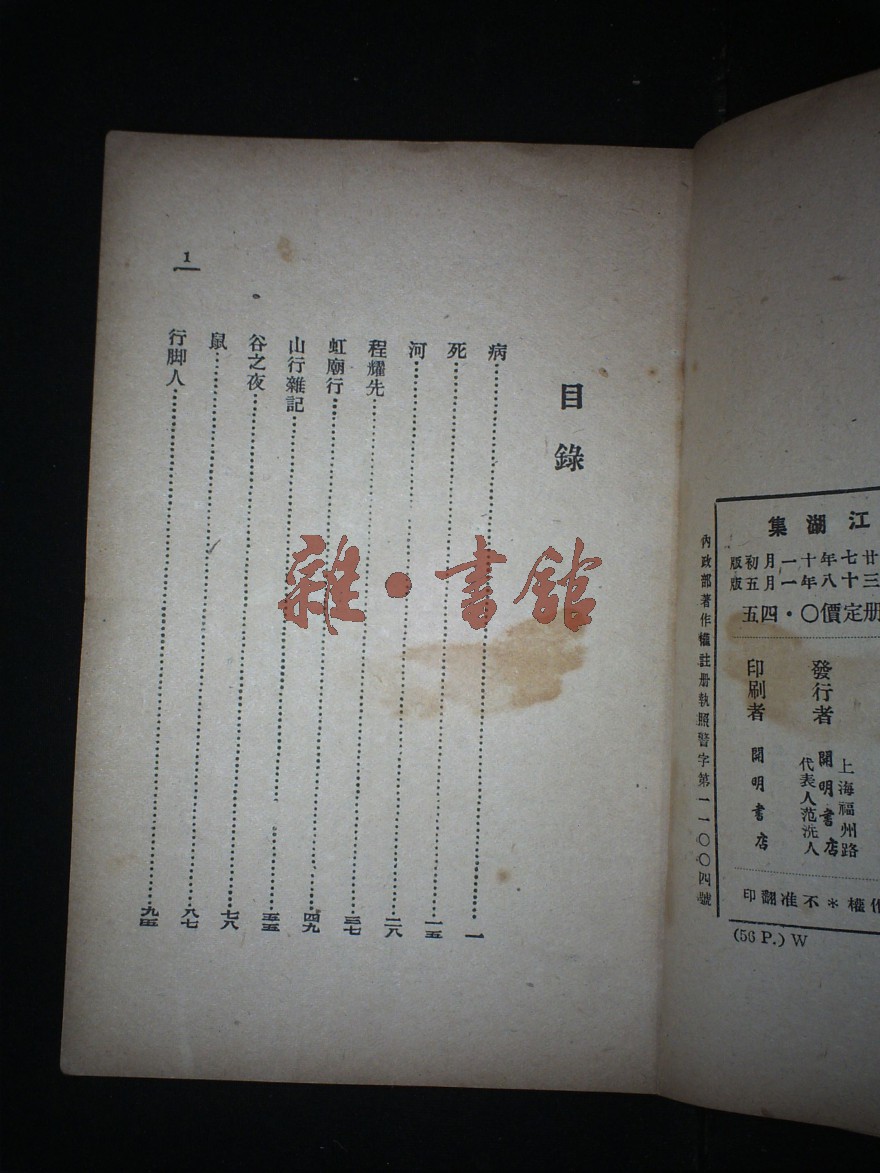 目錄
病……一
死……一五
河……二八
程耀先……三七
虹廟行……四九
山行雜記……五五
谷之夜……七八
鼠……八七
行脚人……九五
1
江湖集
廿七年十一月初版
三十八年一月五版
册定價〇・四五
上海福州路
發行者 開明書店
代表人范洗人
印刷者 開明書店
權＊不准翻印
內政部著作權註册執照警字第一一〇〇四號
(56 P.) W
雜・書館